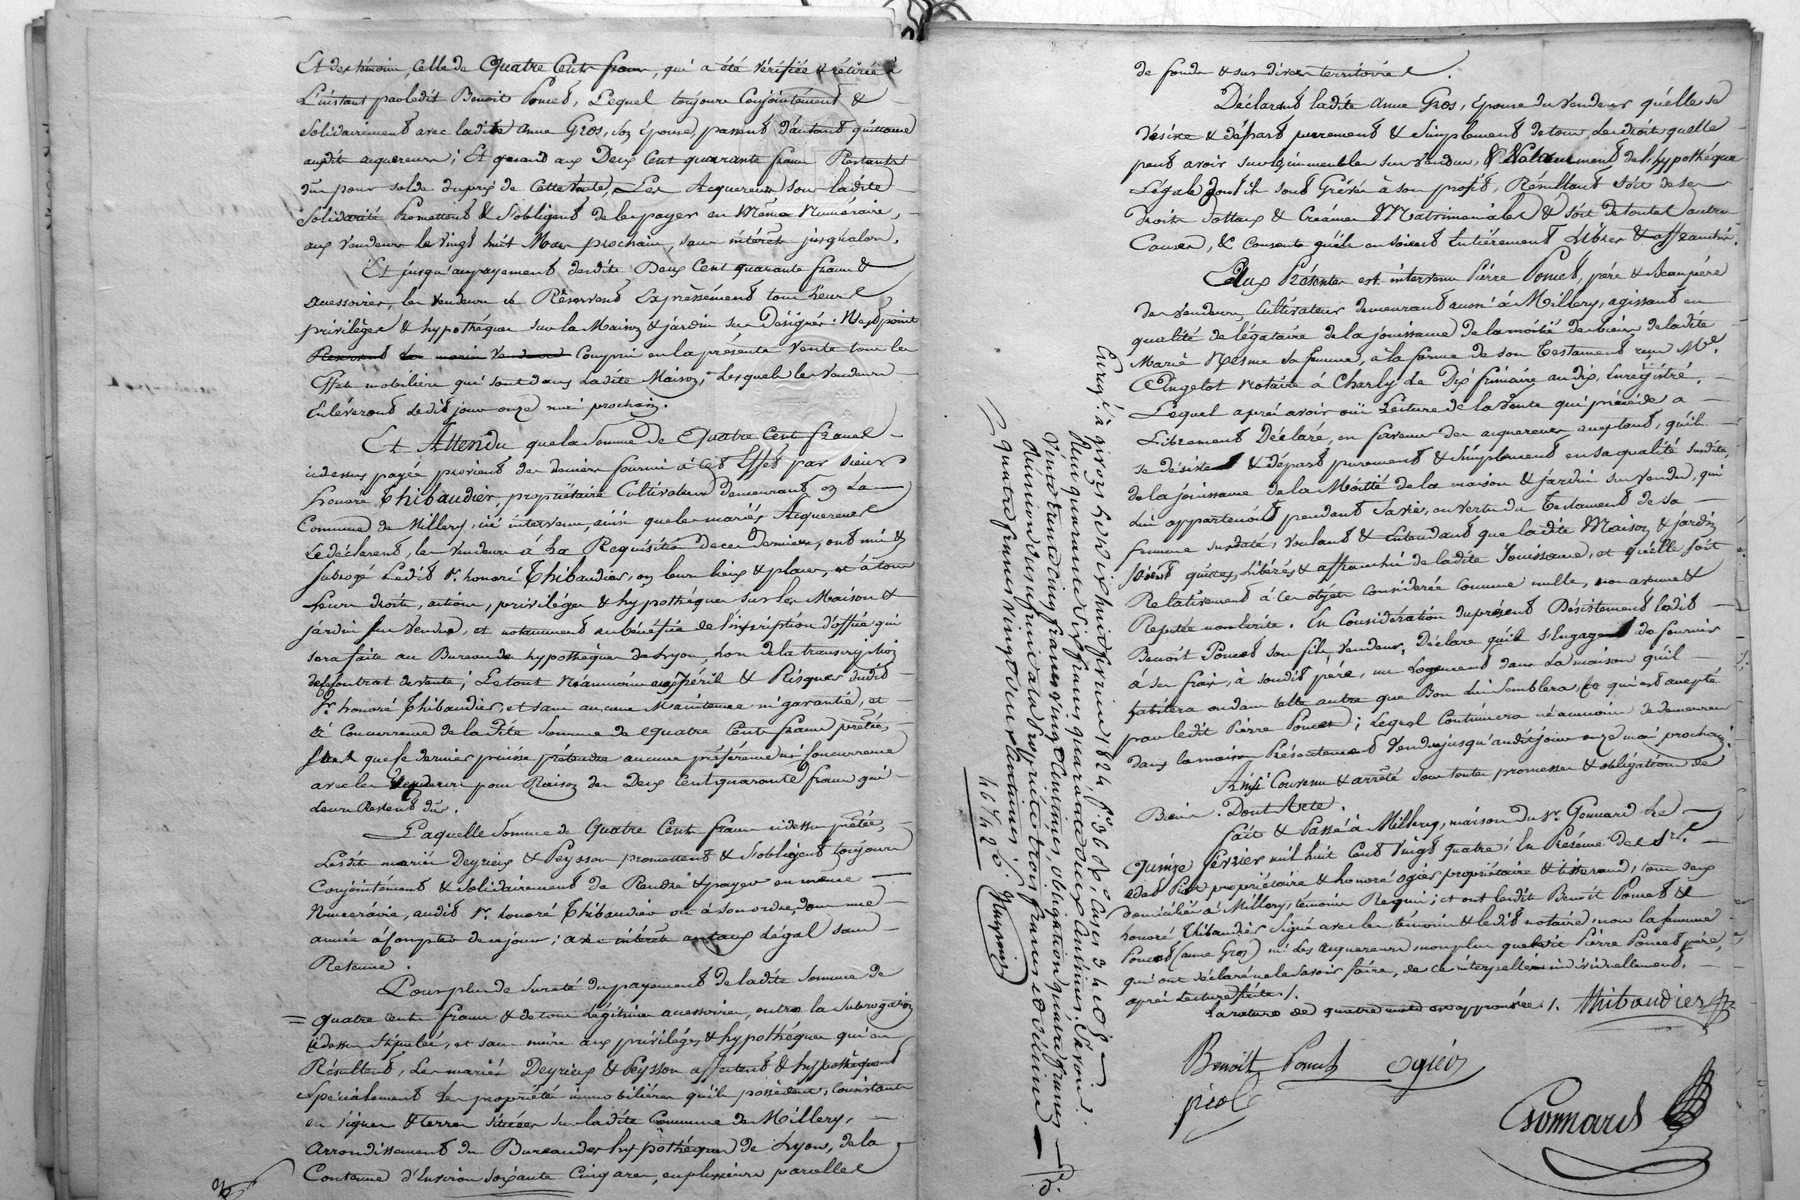 Et des témoins, celle de Quatre Cents francs, qui a été vérifiée & retirée à
L'instant par ledit Benoit Poncet, Lequel toujours Conjointement &
Solidairement avec ladite anne Gros, son épouse, passent d'autant quittance
auxdits acquereurs ; Et quand aux Deux Cent quarante francs Restants
dus pour solde du prix de Cette Vente, Les Acquereurs sous ladite
Solidarité Promettent & S'obligent de les payer en Même Numéraire,
aux vendeurs le vingt huit Mars prochain, sans intérêts jusqu'alors.
Et jusqu'au payement desdits Deux Cent quarante francs &
accessoires, les vendeurs se Réservent Expressément tous leurs
privilèges & hypothèques sur la Maison & jardin sus Désignés. N'est point
Compris en la présente Vente tous les
Effets mobiliers qui sont dans Ladite Maison, Lesquels les Vendeurs
Enlèveront ledit jour onze mai prochain.
Et Attendu que la Somme de Quatre Cent francs
cidessus payée provient des deniers fournis à Cet Effet par sieur
honoré Thibaudier, propriétaire Cultivateur demeurant en La
Commune de Millery, ici intervenu, ainsi que les mariés Acquereurs
Le déclarent, les Vendeurs à La Réquisition de ce Dernier, ont mis &
Subrogé Ledit Sr. honoré Thibaudier, en leurs lieux & places, et à tous
Leurs droits, actions, privilèges & hypothèques sur les Maison &
jardin sus Vendus, et notamment au bénéfice de l'inscription d'office qui
sera faite au Bureau des hypothèques de Lyon, Lors de la transcription
du Contrat de vente ; Le tout Néanmoins aux Périls & Risques dudit
Sr. honoré Thibaudier, et sans aucune Maintenue ni garantie, et
à Concurrence de La Dite Somme de quatre Cents francs prêtés,
sans que ce dernier puisse prétendre aucune préférence ni Concurrence
avec les Vendeurs pour Raison des Deux Cent quarante francs qui
Leurs Restent dûs.
Laquelle Somme de Quatre Cents francs cidessus prêtée,
Lesdits mariés Deyrieux & Peysson promettent & S'obligent toujours
Conjointement & Solidairement de Rendre & payer en même
Numéraire, audit Sr. honoré Thibaudier ou à son ordre, dans une
année à Compter de ce jour ; avec intérêts au taux Légal sans
Retenue.
Pour plus de sureté du payement de ladite somme de
quatre cents francs & de tous Légitimes accessoires, outre la Subrogation
cidessus Stipulée, et sans nuire aux privilèges & hypothèques qui en
Résultent, Les mariés Deyrieux & Peysson affectent & hypothèquent
Spécialement Les propriétés immobilières qu'ils possèdent, Consistantes
en vignes & terres Situées sur ladite Commune de Millery,
Arrondissement du Bureau des hypothèques de Lyon, de la
Contenue d'Environ Soixante Cinq ares, en plusieurs parcelles
de fonds & sur divers territoires.
Déclarant ladite anne Gros, épouse du vendeur qu'elle se
désiste & départ purement & Simplement de tous Les droits qu'elle
peut avoir sur les immeubles sus vendus, & Notamment de l'hypothèque
Légale dont ils sont Grevés à son profit, Résultant soit de ses
Droits dotaux & Créances Matrimoniales & soit de toutes autres
Causes, & Consent qu'ils en soient Entièrement Libres & affranchis.
Aux Présentes est intervenu Pierre Poncet, père & Beaupère
des vendeurs, Cultivateur demeurant aussi à Millery, agissant en
qualité de légataire de la jouissance de la moitié des biens de ladite
Marie Nesme sa femme, à la forme de son testament reçu Me.
Pingelot Notaire à Charly Le Dix frimaire an dix, Enregistré.
Lequel après avoir oüi Lecture de la vente qui précède a
Librement Déclaré, en faveur des acquereurs acceptant, qu'il
se désiste & départ purement & Simplement en sa qualité susdite,
de la jouissance de la Moitié de la maison & jardin sus vendus, qui
Lui appartenoit pendant Sa vie, en vertu du Testament de sa
femme susdaté, Voulant & Entendant que la dite Maison & jardin
Soient quittes, Libérés & affranchis de ladite Jouissance, et qu'elle soit
Relativement à Ces objets Considérée Comme nulle, non avenue &
Réputée non écrite. En Considération du présent Désistement ledit
Benoit Poncet son fils, Vendeur, Déclare qu'il S'Engage de fournir
à ses frais, à sondit père, un Logement dans La maison qu'il
habitera ou dans telle autre que Bon Lui Semblera, Ce qui est accepté
par ledit Pierre Poncet ; Lequel Continuera néanmoins de demeurer
dans la maison Présentement Vendue jusqu'audit jour onze mai prochain.
Ainsi Convenu & arrêté sous toutes promesses & obligation de
Biens. Dont Acte
Fait & Passé à Millery, maison du Sr. Gonnard Le
Quinze février mil huit Cent vingt quatre ; En Présence des Srs.
propriétaire & honoré Ogier propriétaire & tisserand, tous deux
domiciliés à Millery, témoins Requis ; et ont lesdits Benoit Poncet &
honoré Thibaudier Signé avec les témoins & ledit notaire, non la femme
Poncet (anne Gros) ni Les acquereurs non plus que ledit Pierre Poncet père,
qui ont déclaré ne le Savoir faire, de ce interpellés individuellement,
après Lecture faite ./.
La rature de quatre mots est approuvée ./. Thibaudier
Benoit Poncet Ogier
piol
Gonnard
Enregé. à givors Le dix huit février 1824 fo. 36
Reçu quarante six francs quarante deux centimes, Savoir
Vente trente cinq francs vingt centimes, obligation quatre francs
Réunion d'usufruit à la propriété trois francs et décime
quatre francs vingt deux centimes.
46 f 42 c.